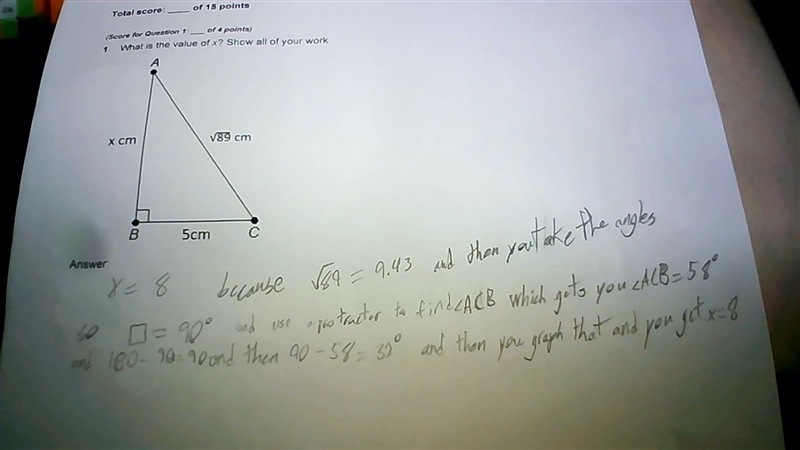 Total score: ____ of 15 points
(Score for Question 1: ___ of 4 points)
1 What is the value of x? Show all of your work
A
x cm
√89 cm
B
5cm
C
Answer:
x = 8 because √89 = 9.43 and then you take the angles
so □ = 90° and use a protractor to find ∠ACB which gets you ∠ACB = 58°
and 180 - 90 = 90 and then 90 - 58 = 32° and then you graph that and you get x = 8